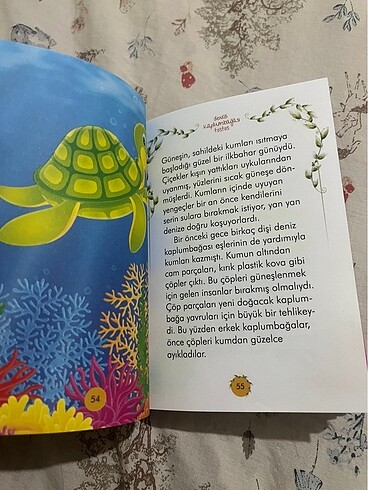 deniz
kaplumbağası
tostos
Güneşin, sahildeki kumları ısıtmaya
başladığı güzel bir ilkbahar günüydü.
Çiçekler kışın yattıkları uykularından
uyanmış, yüzlerini sıcak güneşe dön-
müşlerdi. Kumların içinde uyuyan
yengeçler bir an önce kendilerini
serin sulara bırakmak istiyor, yan yan
denize doğru koşuyorlardı.
Bir önceki gece birkaç dişi deniz
kaplumbağası eşlerinin de yardımıyla
kumları kazmıştı. Kumun altından
cam parçaları, kırık plastik kova gibi
çöpler çıktı. Bu çöpleri güneşlenmek
için gelen insanlar bırakmış olmalıydı.
Çöp parçaları yeni doğacak kaplum-
bağa yavruları için büyük bir tehlikey-
di. Bu yüzden erkek kaplumbağalar,
önce çöpleri kumdan güzelce
ayıkladılar.
54
55